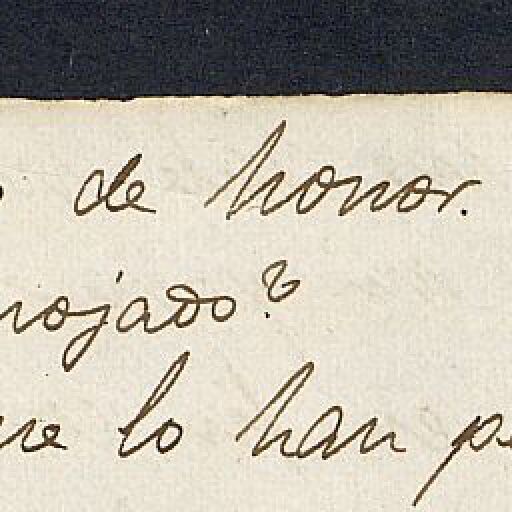 de honor.
nojado?
ue lo han pe